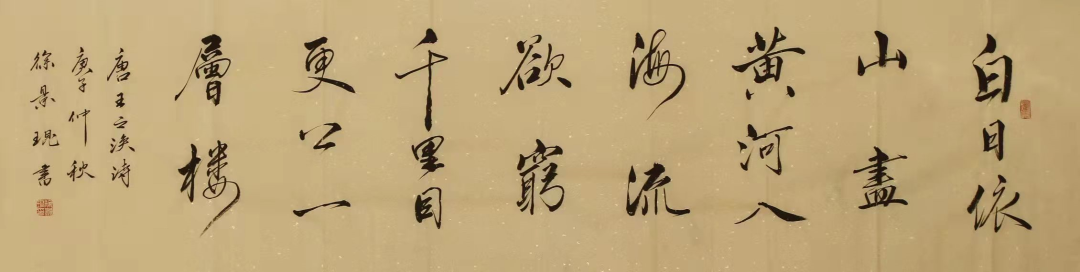 白日依
山盡
黄河入
海流
欲窮
千里目
更上一
層樓
唐王之渙诗
庚子仲秋
徐景琨書